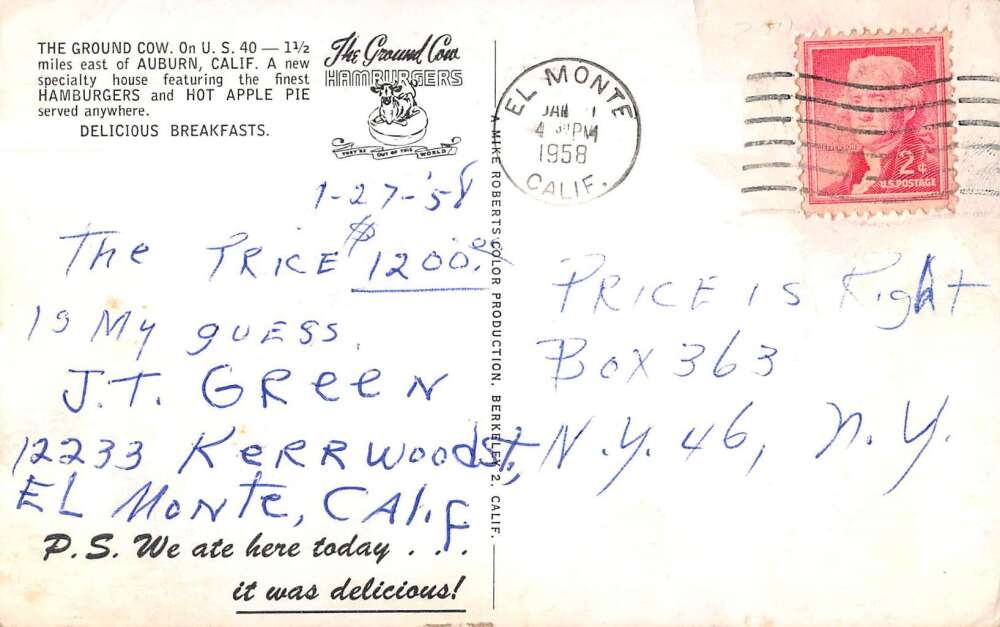 THE GROUND COW. On U. S. 40 — 1½
miles east of AUBURN, CALIF. A new
specialty house featuring the finest
HAMBURGERS and HOT APPLE PIE
served anywhere.
DELICIOUS BREAKFASTS.
The Ground Cow
HAMBURGERS
THEY'RE OUT OF THIS WORLD
EL MONTE
JAN
4 PM
1958
CALIF.
JEFFERSON
2¢
U.S. POSTAGE
1-27-'58
The PRICE $1200.00
is My guess.
J.T. GReeN
12233 KeRRwood St,
EL MoNte, CALif.
P.S. We ate here today . . .
it was delicious!
A MIKE ROBERTS COLOR PRODUCTION, BERKELEY 2, CALIF.
PRICE is Right
Box 363
N.Y. 46, N.Y.